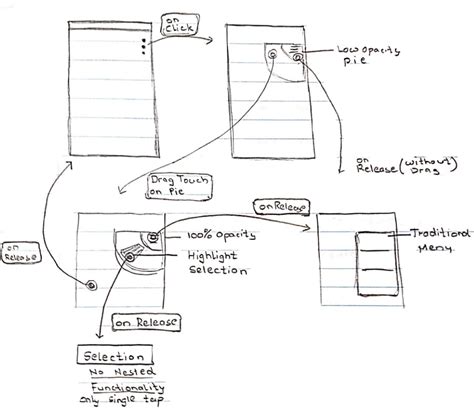 on
Click
Low opacity
pie
on
Release (without)
Drag
Drag Touch
on Pie
on Release
100% Opacity
Highlight
Selection
Traditional
Menu
on
Release
on Release
Selection
No Nested
Functionality
only single tap